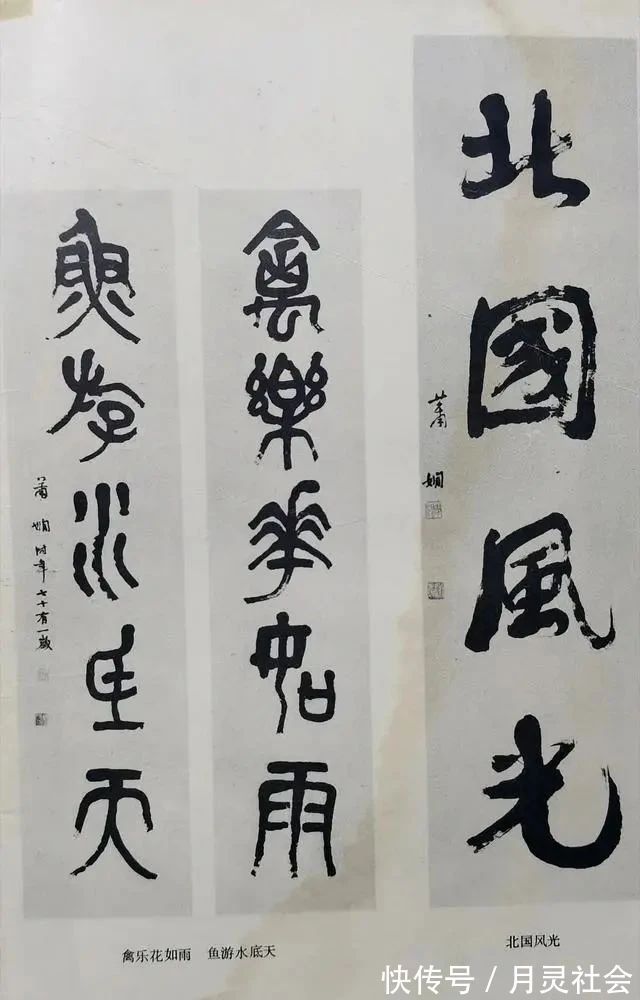 北國風光
蕭嫻
禽樂華如雨
魚斿水氐天
蕭嫻時年七十有一歲
禽乐花如雨 鱼游水底天
北国风光
快传号 / 月灵社会